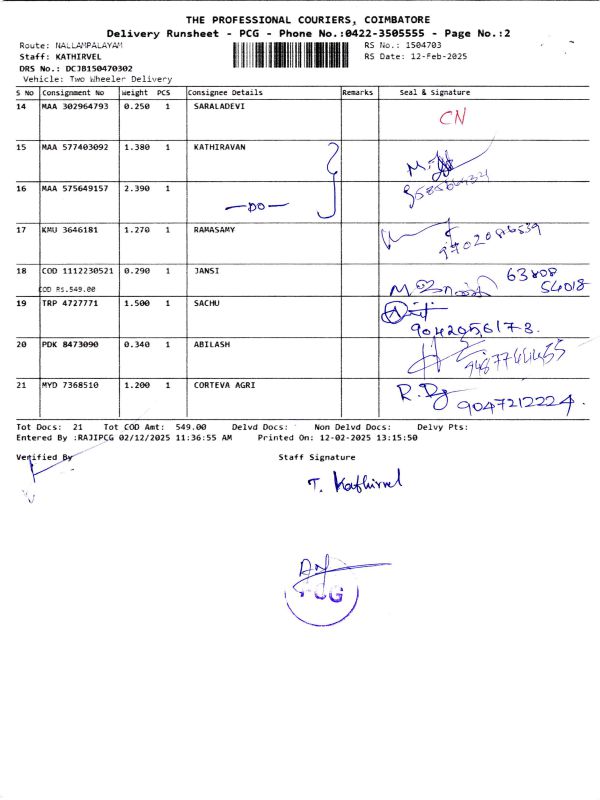 THE PROFESSIONAL COURIERS, COIMBATORE
Delivery Runsheet - PCG - Phone No.:0422-3505555 - Page No.:2
Route: NALLAMPALAYAM RS No.: 1504703
Staff: KATHIRVEL RS Date: 12-Feb-2025
DRS No.: DCJB150470302
Vehicle: Two Wheeler Delivery
S No Consignment No Weight PCS Consignee Details Remarks Seal & Signature
14 MAA 302964793 0.250 1 SARALADEVI CN
15 MAA 577403092 1.380 1 KATHIRAVAN
16 MAA 575649157 2.390 1 —DO—
17 KMU 3646181 1.270 1 RAMASAMY
18 COD 1112230521 0.290 1 JANSI 63808
COD RS.549.00 54018
19 TRP 4727771 1.500 1 SACHU
9042056173.
20 PDK 8473090 0.340 1 ABILASH
21 MYD 7368510 1.200 1 CORTEVA AGRI 9047212224.
Tot Docs: 21 Tot COD Amt: 549.00 Delvd Docs: Non Delvd Docs: Delvy Pts:
Entered By :RAJIPCG 02/12/2025 11:36:55 AM Printed On: 12-02-2025 13:15:50
Verified By Staff Signature
T. Kathirvel
PCG